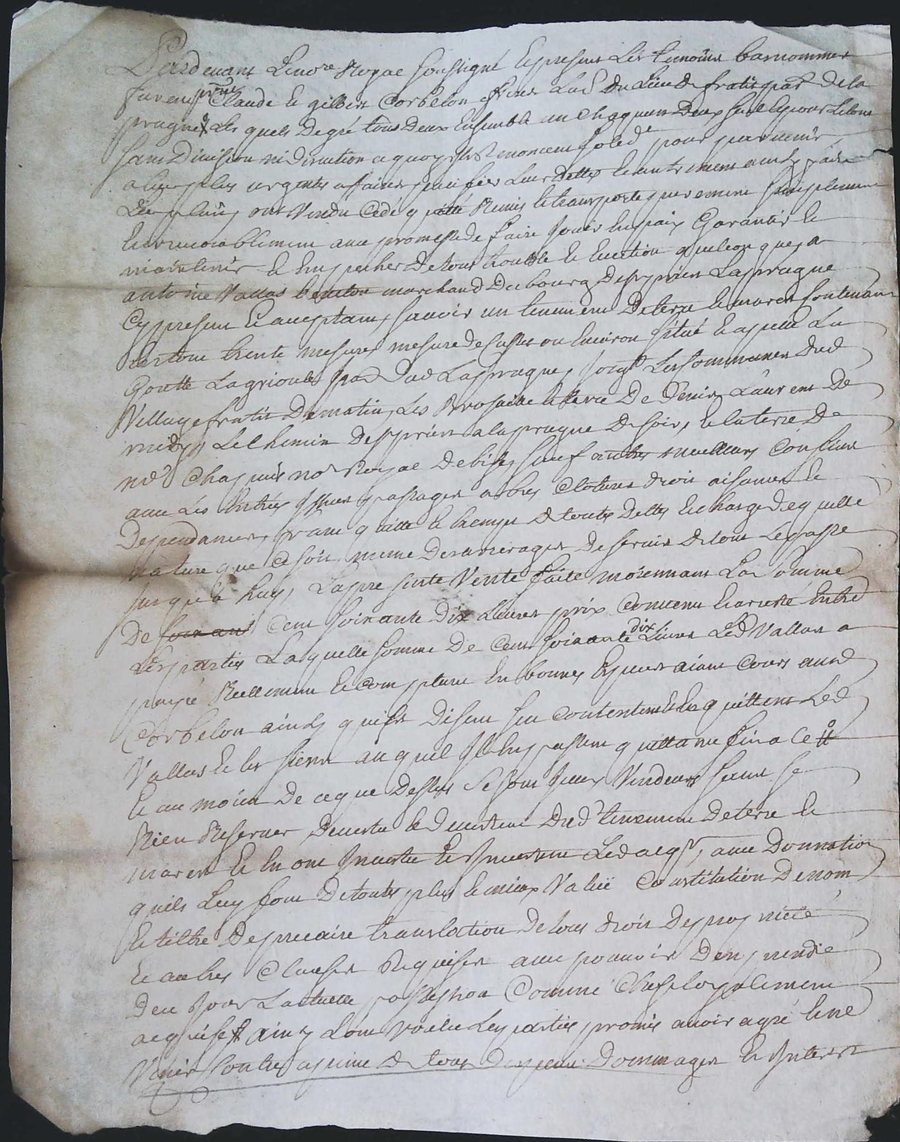 Pardevant Le no.re Royal soussigné Et présent Les temoins bas nommes
furent pnts Claude et gilbert Corbelon freres Lab. du Lieu de fratis par. de la
prugne Les quels de gré tous deux Ensemble un chaqun deux seul et pour Le tout
sans Division ni discution a quoy ont renoncent pour parvenir
a leurs plus urgents affaires Leur dettes et autrement ainsy faire
Leur plait ont vendu Cedé quitté Remis et transporté purement simplement
Et irrevocablement avec promesse de faire jouir En paix Garantir Et
maintenir Et Empecher de tous trouble Et Eviction quelconques a
antoine Vallas marchand du bourg de st priest Laprugne
Cy present Et aceptant, savoir un tenement de terre Et marest Contenant
Le tout trente mesures mesure de Cusset ou Environ situé Et apellé La
Goutte La par. dud Laprugne, joig.t Les Communes dud
Village fratis de matin, Les Et terre de Denis Laurent de
midy, Le Chemin de st priest a la prugne de soir, Et la terre de
m.e Chapuis no.re Royal de bise, sauf autres meilleurs Confins
avec Les Entrées issues passages arbres Clotures droit aisances Et
Dependances, franc quitte Et Exempt de toute dettes Et charge de quelle
Nature que ce soit, meme des arrerages de servis de tout Le passé
jusqu'a huy, La presente Vente faite moiennant La somme
De Cent soixante dix Livres prix Convenu Et arresté Entre
Les parties Laquelle somme de Cent soixante dix Livres Led Vallas a
payé Reellement Et Comptant En bonnes Especes aiant Cours auxd
Corbelon ainsy qu'ils disent sen Contentent Et En quittent Led
Vallas Et les siens auquel ils En passent quittance finale
Et au moien de ce que Dessus se sont iceux Vendeurs sans se
Rien Reserver Devestu Et Devestent Dud tenement de terre Et
marest Et En ont investu Et investent Led acq.r, avec Donnation
qu'ils Luy font de toute plus Et mieux Valüe Constitution de nom
Et tiltre De precaire translation de tous droit De proprieté
Et autres Clauses Requises avec pouvoir Den prendre
Den jour Lactuelle possession Comme Chose Loyalement
acquise ainsy Lont Voulu Les parties promis avoir agré Et ne
Venir Contre a peine de tous Depens Dommages Et Interest